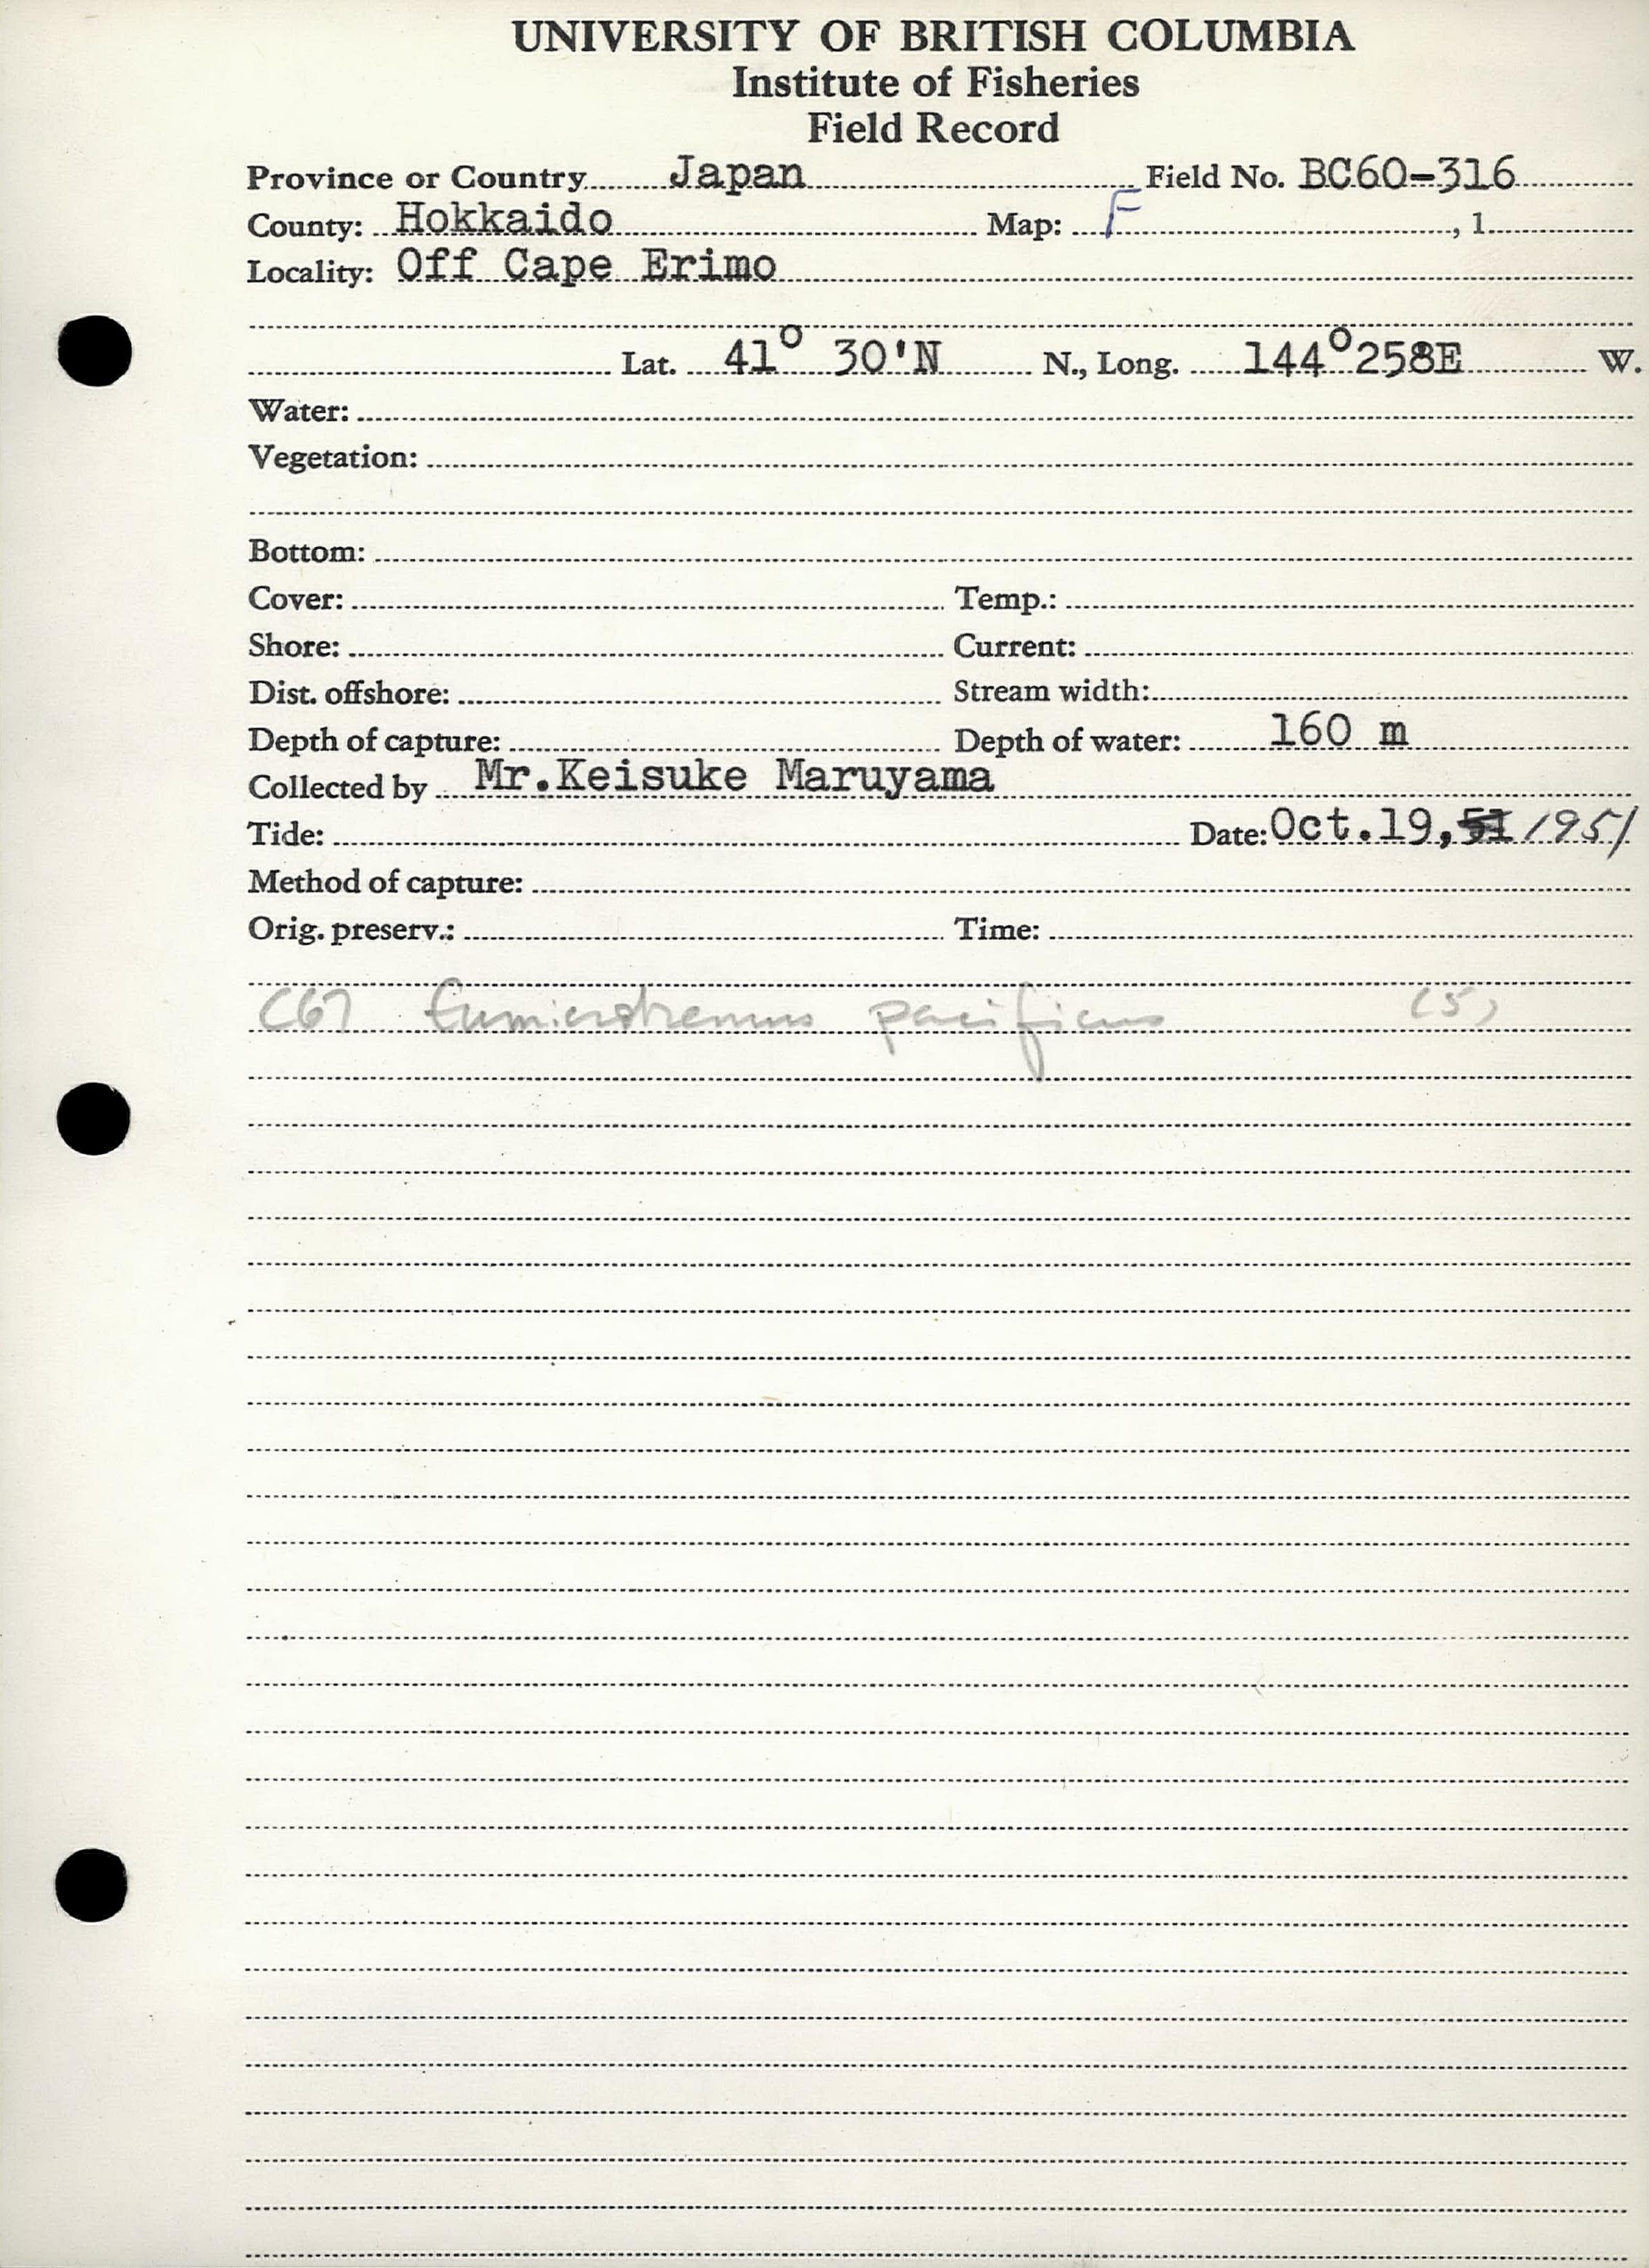 UNIVERSITY OF BRITISH COLUMBIA
Institute of Fisheries
Field Record
Province or Country Japan Field No. BC60-316
County: Hokkaido Map: F , 1
Locality: Off Cape Erimo
Lat. 41° 30'N N., Long. 144°258E W.
Water:
Vegetation:
Bottom:
Cover: Temp.:
Shore: Current:
Dist. offshore: Stream width:
Depth of capture: Depth of water: 160 m
Collected by Mr.Keisuke Maruyama
Tide: Date: Oct.19, 51 1951
Method of capture:
Orig. preserv.: Time:
pacificus (5)